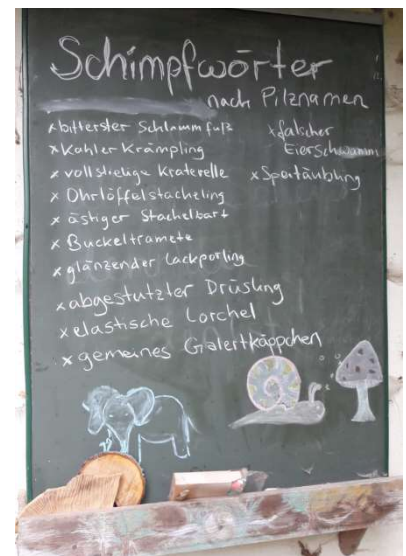 Schimpfwörter
nach Pilznamen
x bitterster Schlammfuß
x Kahler Krämpling
x vollstielige Kraterelle
x Ohrlöffelstacheling
x ästiger Stachelbart
x Buckeltramete
x glänzender Lackporling
x abgestutzter Drüsling
x elastische Lorchel
x gemeines Galertkäppchen
x falscher
Eierschwamm
x Speitäubling